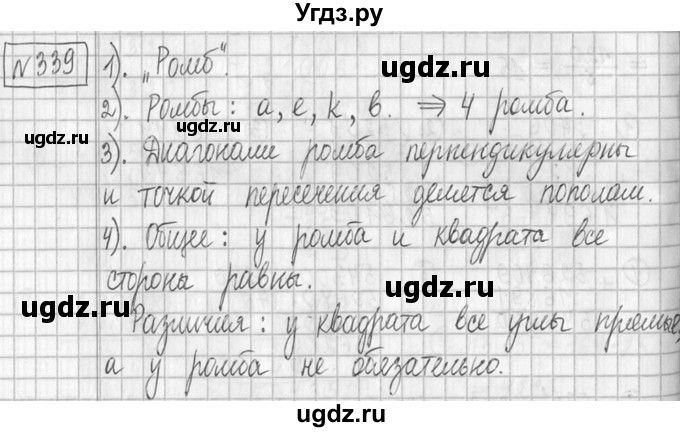 Угдз.ру
№339 1). „Ромб".
ugdz.ru ugdz.ru
2). Ромбы: а, е, к, в. ⇒ 4 ромба.
ugdz.ru
ugdz.ru
3). Диагонали ромба перпендикулярны
и точкой пересечения делятся пополам.
ugdz.ru
4). Общее: у ромба и квадрата все
сторона равны.
ugdz.ru ugdz.ru
Различия: у квадрата все углы прямые,
а у ромба не обязательно.
ugdz.ru